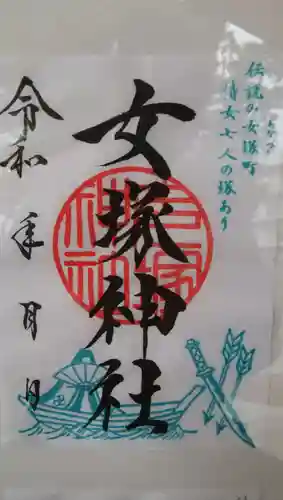 伝説の女塚町
おなづか
侍女七人の塚あり
女塚神社
令和 年 月 日